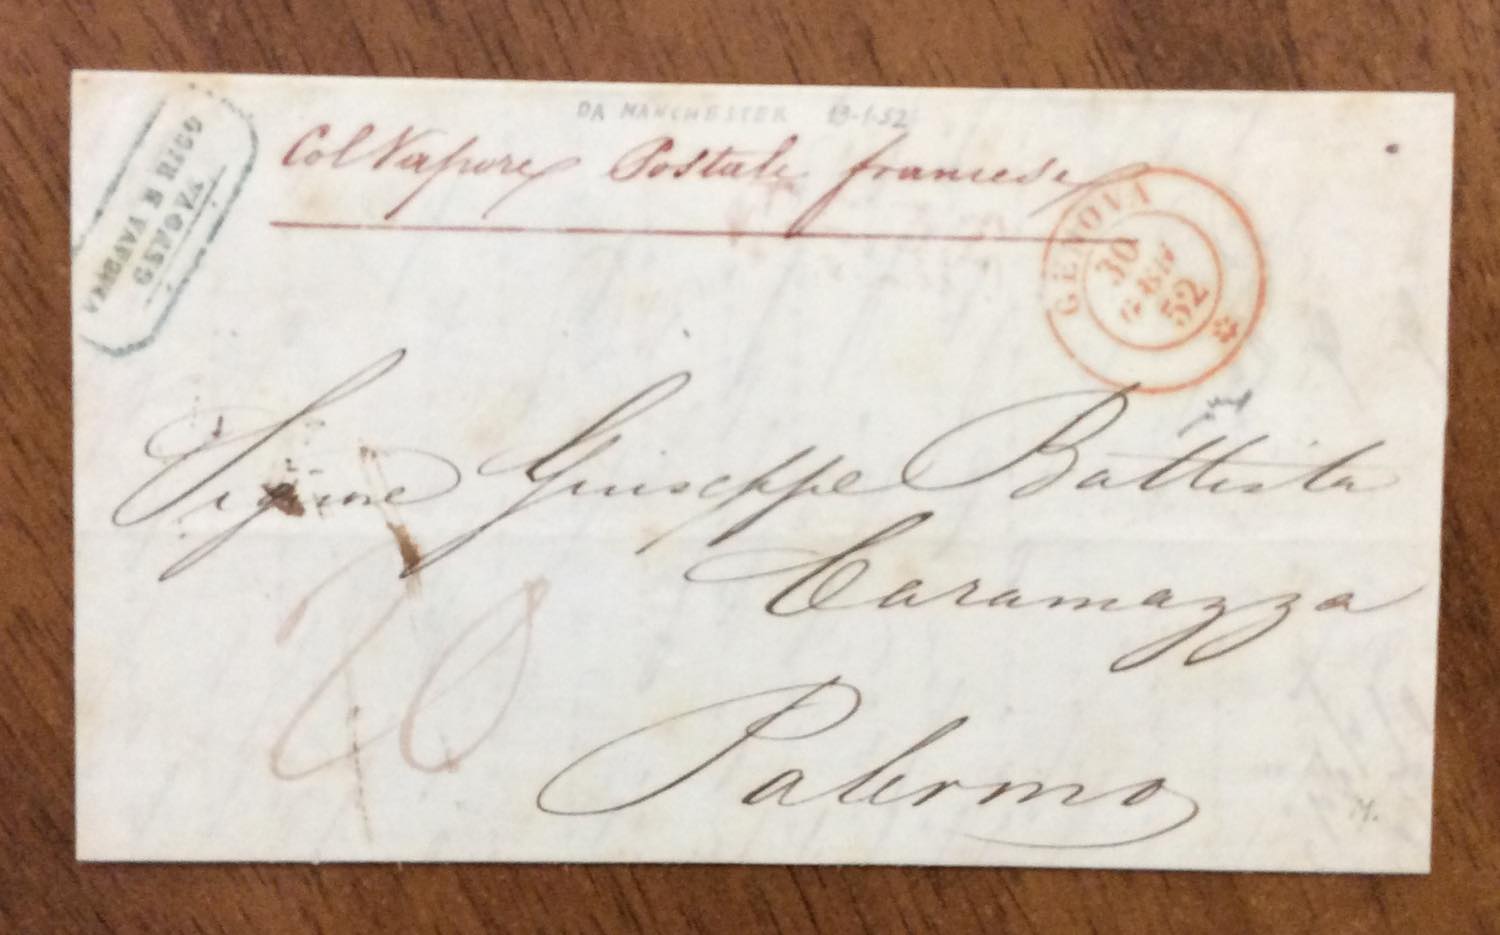 DA MANCHESTER 19-1-52
Col Vapore Postale francese
E RIGO
GENOVA
GENOVA
30
GEN
52
Signore Giuseppe Battista
Caramazza
20
Palermo
M.